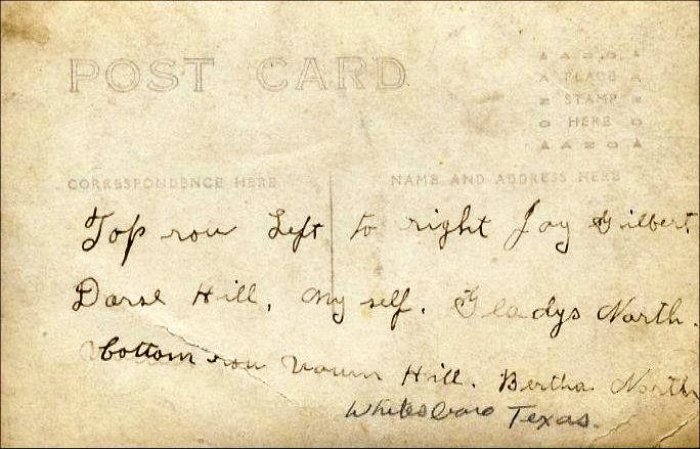 POST CARD
AZO
PLACE
STAMP
HERE
AZO
CORRESPONDENCE HERE
NAME AND ADDRESS HERE
Top row Left to right Jay Gilbert
Darse Hill, My self. Gladys North
bottom row Hill. Bertha North
Whitesboro Texas.